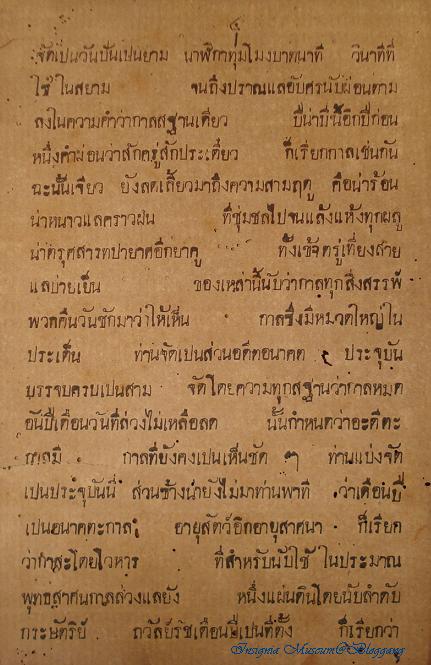 ๔
จัดเปนวันปันเปนยาม นาฬิกาทุ่มโมงบาทนาที วินาทีที่
ใช้ ในสยาม จนถึงปราณแลอับศรนับผ่อนตาม
ลงในความคำว่ากาลสฐานเดียว ปีน่าปีนี้อีกปีก่อน
หนึ่งคำผ่อนว่าสักครู่สักประเดี๋ยว ก็เรียกกาลเช่นกัน
ฉะนั้นเจียว ยังลดเลี้ยวมาถึงความสามฤดู คือน่าร้อน
น่าหนาวแลคราวฝน ที่ชุ่มชลไปจนแล้งแห้งทุกผลู
น่าตรุศสารทปายาศอีกยาคู ทั้งเช้าตรู่เที่ยงสาย
แลบ่ายเย็น ของเหล่านี้นับว่ากาลทุกสิ่งสรรพ์
พวกคืนวันชักมาว่าให้เห็น กาลซึ่งมีหมวดใหญ่ใน
ประเด็น ท่านจัดเปนส่วนอดีตอนาคต ประจุบัน
บรรจบครบเปนสาม จัดโดยความทุกสฐานว่ากาลหมด
อันปีเดือนวันที่ล่วงไม่เหลือลด นั้นกำหนดว่าอะดีตะ
กาลมี กาลที่ยังคงเปนเห็นชัด ๆ ท่านแบ่งจัด
เปนประจุบันนี่ ส่วนข้างน่ายังไม่มาท่านพาที ว่าเดือนปี
เปนอนาคตะกาล อายุสัตว์อีกอายุสาศนา ก็เรียก
ว่ากาละโดยโวหาร ที่สำหรับนับใช้ ในประมาณ
พุทธสาศนกาลล่วงแลยัง หนึ่งแผ่นดินโดยนับลำดับ
กระษัตริย์ ถวัลย์รัชเดือนปีเปนที่ตั้ง ก็เรียกว่า
Insignia Museum@Bloggang